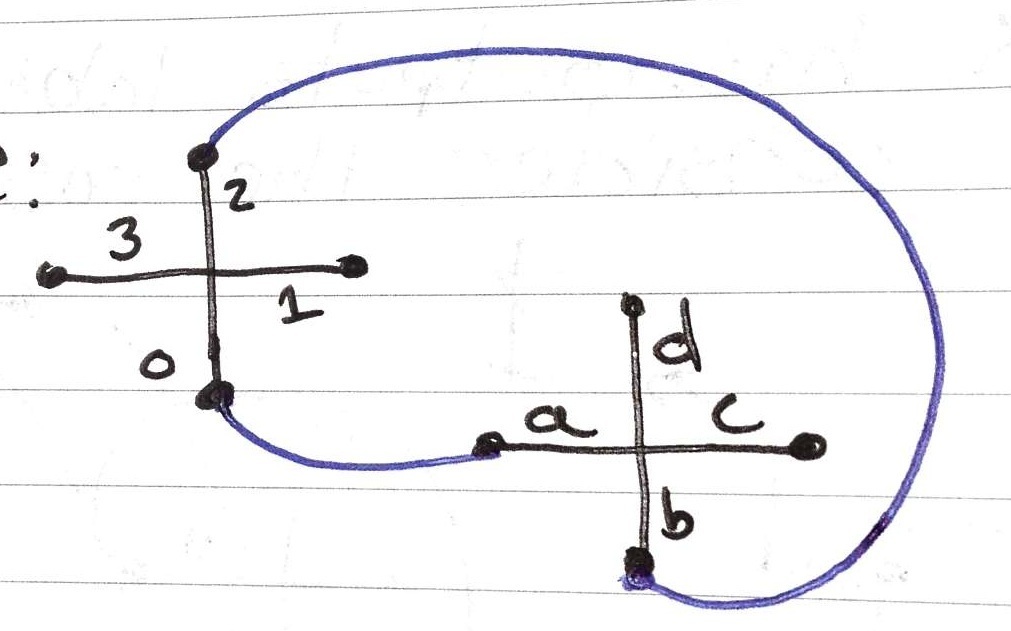 e:
2
3
1
0
d
a c
b